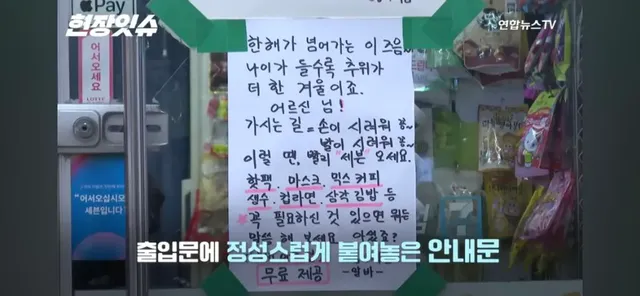 현장잇슈
연합뉴스TV
Pay
어서오세요
한해가 넘어가는 이 즈음~
나이가 들수록 추위가
더 한 겨울이죠.
어르신 님!
가시는 길 = 손이 시려워 꽁~
발이 시려워 꽁~
이럴 땐, 빨리 세븐 오세요.
핫팩, 마스크, 믹스커피
생수, 컵라면, 삼각김밥 등
꼭 필요하신 것 있으면 뭐든
말씀 해 보세요. 아셨죠?
무료 제공 -알바-
어서오십시오
세븐입니다
출입문에 정성스럽게 붙여놓은 안내문